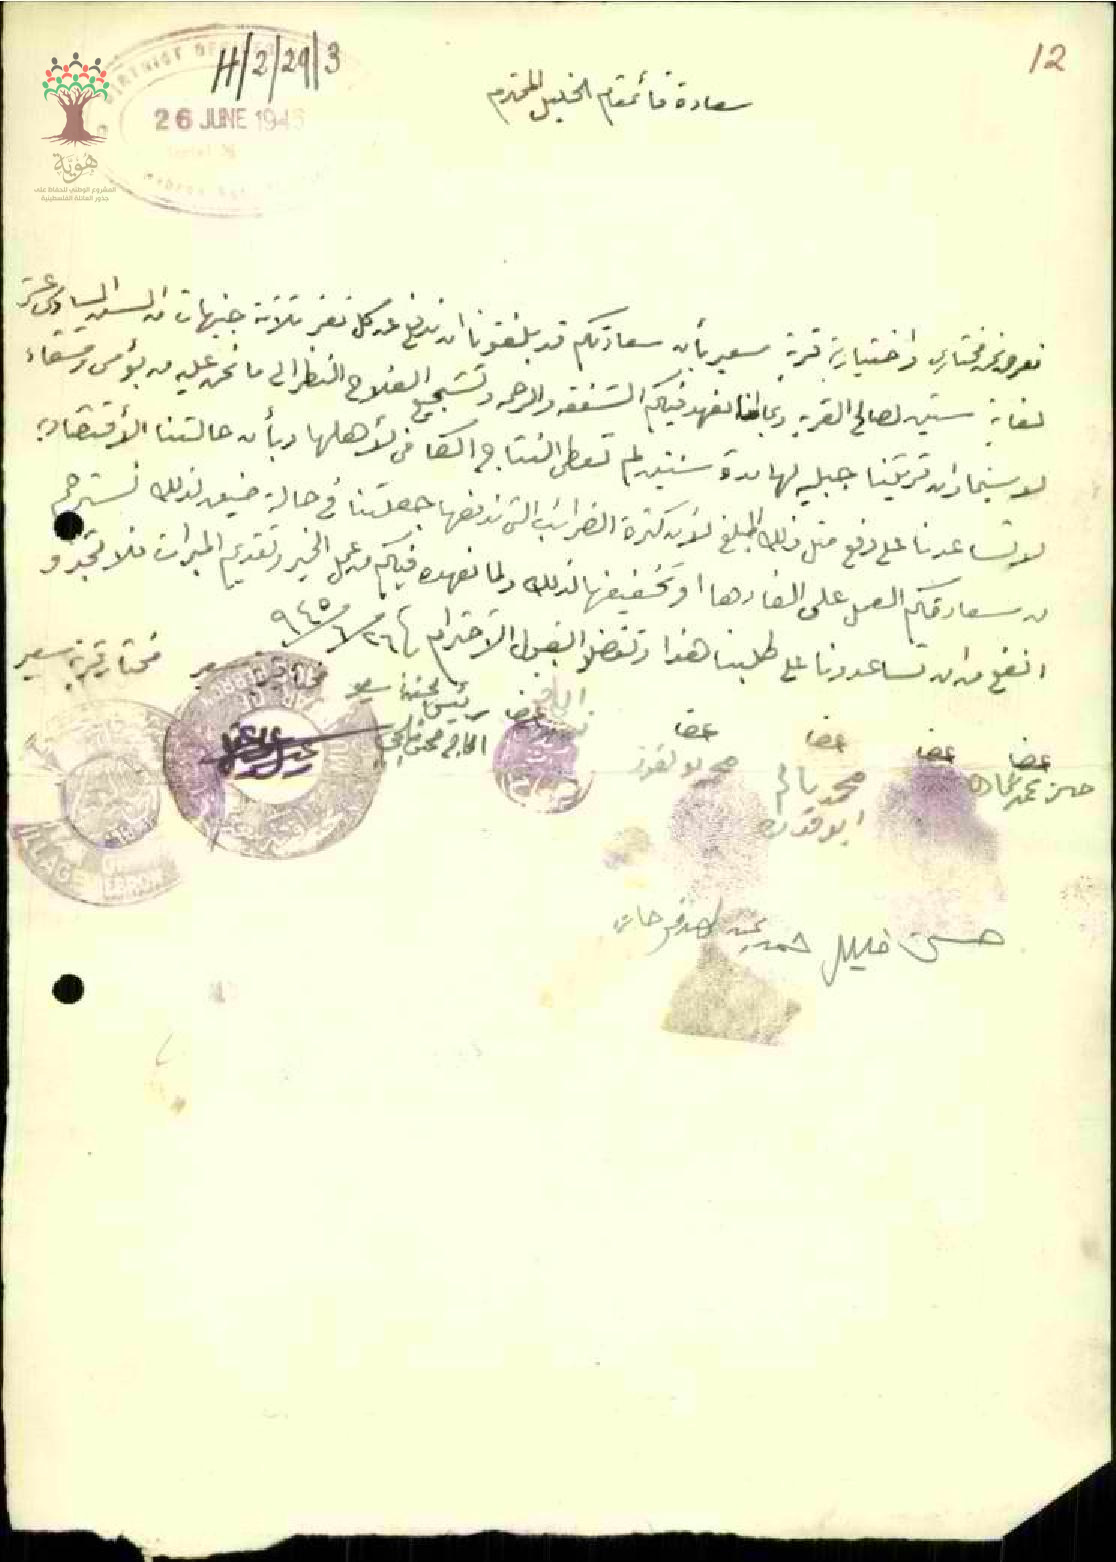 12
H/2/29/3
DISTRICT OFFICER
26 JUNE 194
هوية
المشروع الوطني للحفاظ على
جذور العائلة الفلسطينية
سعادة قائمقام الخليل المحترم
نعرض نحن مختاري واختيارية قرية سعير بأن سعادتكم قد بلغتونا ان ندفع عن كل نفر ثلاثة جنيهات من السن السادس عشر
لغاية ستين لصالح القرية وبما اننا نعهد فيكم الشفقه والرحمه وتشجيع الفلاح النظر الى ما نحن عليه من بؤس وشقاء
لا سيما وان قريتنا جبليه لها مدة سنتين لم تعطي النتاج الكافي لأهلها وبأن حالتنا الأقتصاديه
لا تساعدنا على دفع مثل ذلك المبلغ لأن كثرة الضرائب التي ندفعها جعلتنا في حالة ضيق لذلك نسترحم
من سعادتكم العمل على الغاءها او تخفيفها لذلك ولما نعهده فيكم من عمل الخير وتقديم المبرات فلا نجد
انفع من ان تساعدونا على طلبنا هذا وتفضلو بقبول الاحترام ٢٦/٦/٩٤٥
مختار قرية سعير
مختار قرية سعير
رئيس لجنة سعير
الحاج
عضا
عضا
عضا
عضا
عضا
محمد سالم
ابو
حسن محمد
حسن خليل حمد
VILLAGE
HEBRON